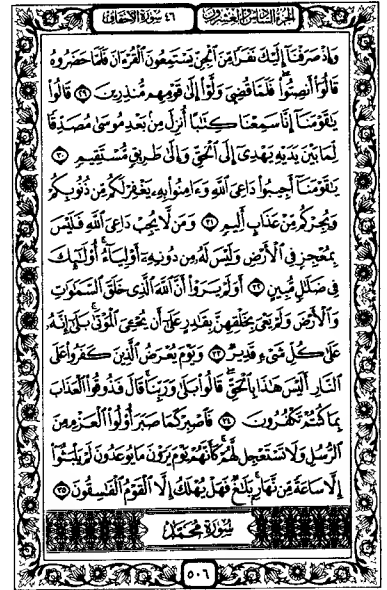 الجزء السادس والعشرون ٤٦ سورة الأحقاف
وَإِذْ صَرَفْنَآ إِلَيْكَ نَفَرًا مِّنَ ٱلْجِنِّ يَسْتَمِعُونَ ٱلْقُرْءَانَ فَلَمَّا حَضَرُوهُ
قَالُوٓا۟ أَنصِتُوا۟ ۖ فَلَمَّا قُضِىَ وَلَّوْا۟ إِلَىٰ قَوْمِهِم مُّنذِرِينَ ٢٩ قَالُوا۟
يَٰقَوْمَنَآ إِنَّا سَمِعْنَا كِتَٰبًا أُنزِلَ مِنۢ بَعْدِ مُوسَىٰ مُصَدِّقًا
لِّمَا بَيْنَ يَدَيْهِ يَهْدِىٓ إِلَى ٱلْحَقِّ وَإِلَىٰ طَرِيقٍ مُّسْتَقِيمٍ ٣٠
يَٰقَوْمَنَآ أَجِيبُوا۟ دَاعِىَ ٱللَّهِ وَءَامِنُوا۟ بِهِۦ يَغْفِرْ لَكُم مِّن ذُنُوبِكُمْ
وَيُجِرْكُم مِّنْ عَذَابٍ أَلِيمٍ ٣١ وَمَن لَّا يُجِبْ دَاعِىَ ٱللَّهِ فَلَيْسَ
بِمُعْجِزٍ فِى ٱلْأَرْضِ وَلَيْسَ لَهُۥ مِن دُونِهِۦٓ أَوْلِيَآءُ ۚ أُو۟لَٰٓئِكَ
فِى ضَلَٰلٍ مُّبِينٍ ٣٢ أَوَلَمْ يَرَوْا۟ أَنَّ ٱللَّهَ ٱلَّذِى خَلَقَ ٱلسَّمَٰوَٰتِ
وَٱلْأَرْضَ وَلَمْ يَعْىَ بِخَلْقِهِنَّ بِقَٰدِرٍ عَلَىٰٓ أَن يُحْۦِىَ ٱلْمَوْتَىٰ ۚ بَلَىٰٓ إِنَّهُۥ
عَلَىٰ كُلِّ شَىْءٍ قَدِيرٌ ٣٣ وَيَوْمَ يُعْرَضُ ٱلَّذِينَ كَفَرُوا۟ عَلَى
ٱلنَّارِ أَلَيْسَ هَٰذَا بِٱلْحَقِّ ۖ قَالُوا۟ بَلَىٰ وَرَبِّنَا ۚ قَالَ فَذُوقُوا۟ ٱلْعَذَابَ
بِمَا كُنتُمْ تَكْفُرُونَ ٣٤ فَٱصْبِرْ كَمَا صَبَرَ أُو۟لُوا۟ ٱلْعَزْمِ مِنَ
ٱلرُّسُلِ وَلَا تَسْتَعْجِل لَّهُمْ ۚ كَأَنَّهُمْ يَوْمَ يَرَوْنَ مَا يُوعَدُونَ لَمْ يَلْبَثُوٓا۟
إِلَّا سَاعَةً مِّن نَّهَارٍۭ ۚ بَلَٰغٌ ۚ فَهَلْ يُهْلَكُ إِلَّا ٱلْقَوْمُ ٱلْفَٰسِقُونَ ٣٥
سورة محمد
٥٠٦